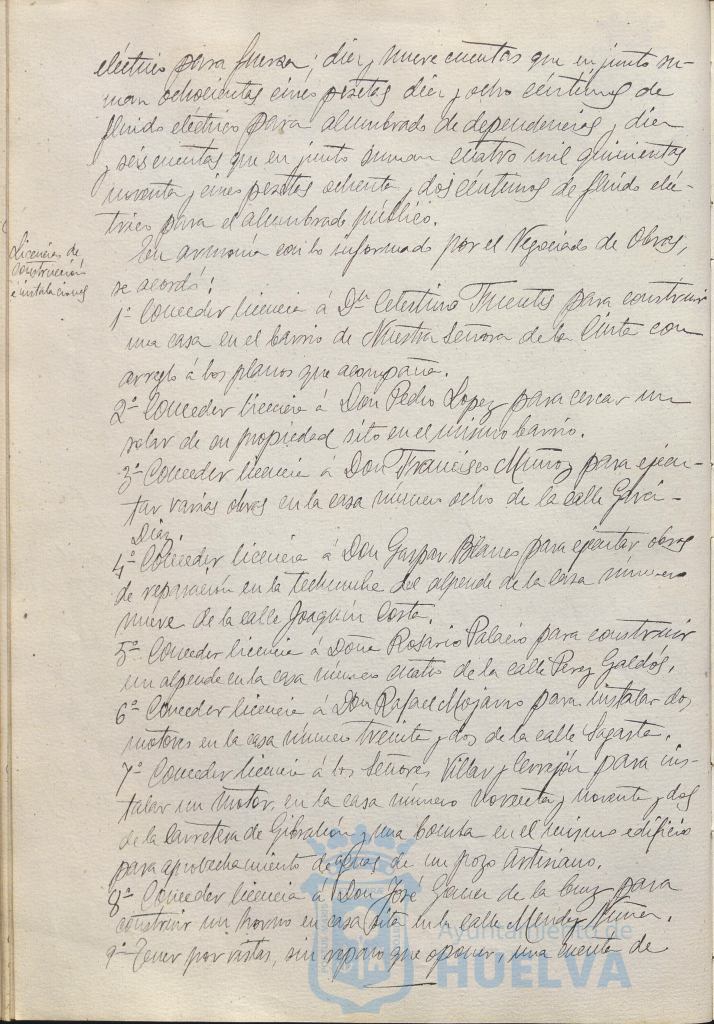 eléctrico para fuerza; diez y nueve cuentas que en junto su-
man ochocientas cinco pesetas diez y ocho céntimos de
fluido eléctrico para alumbrado de dependencias y diez
y seis cuentas que en junto suman cuatro mil quinientas
noventa y cinco pesetas ochenta y dos céntimos de fluido eléc-
trico para el alumbrado público.
Licencias de
construcción
é instalaciones
En armonía con lo informado por el Negociado de Obras,
se acordó:
1º Conceder licencia á Dn Celestino Fuentes para construir
una casa en el barrio de Nuestra Señora de la Cinta con
arreglo á los planos que acompaña.
2º Conceder licencia á Don Pedro Lopez para cercar un
solar de su propiedad sito en el mismo barrio.
3º Conceder licencia á Don Francisco Muñoz para ejecu-
tar varias obras en la casa número ocho de la calle Garci-
Diaz.
4º Conceder licencia á Don Gaspar Blanes para ejecutar obras
de reparación en la techumbre del alpende de la casa número
nueve de la calle Joaquín Costa.
5º Conceder licencia á Doña Rosario Palacio para construir
un alpende en la casa número cuatro de la calle Perez Galdós.
6º Conceder licencia á Don Rafael Mojarro para instalar dos
motores en la casa número treinta y dos de la calle Sagasta.
7º Conceder licencia á los Señores Villar y Cerrejón para ins-
talar un motor en la casa número noventa y noventa y dos
de la Carretera de Gibraleón y una bomba en el mismo edificio
para aprovechamiento de aguas de un pozo artesiano.
8º Conceder licencia á Don José de la Cruz para
construir un horno en casa sita en la calle Mendez Núñez.
9º Tener por vistas, sin reparo que oponer, una cuenta de
Ayuntamiento de
HUELVA